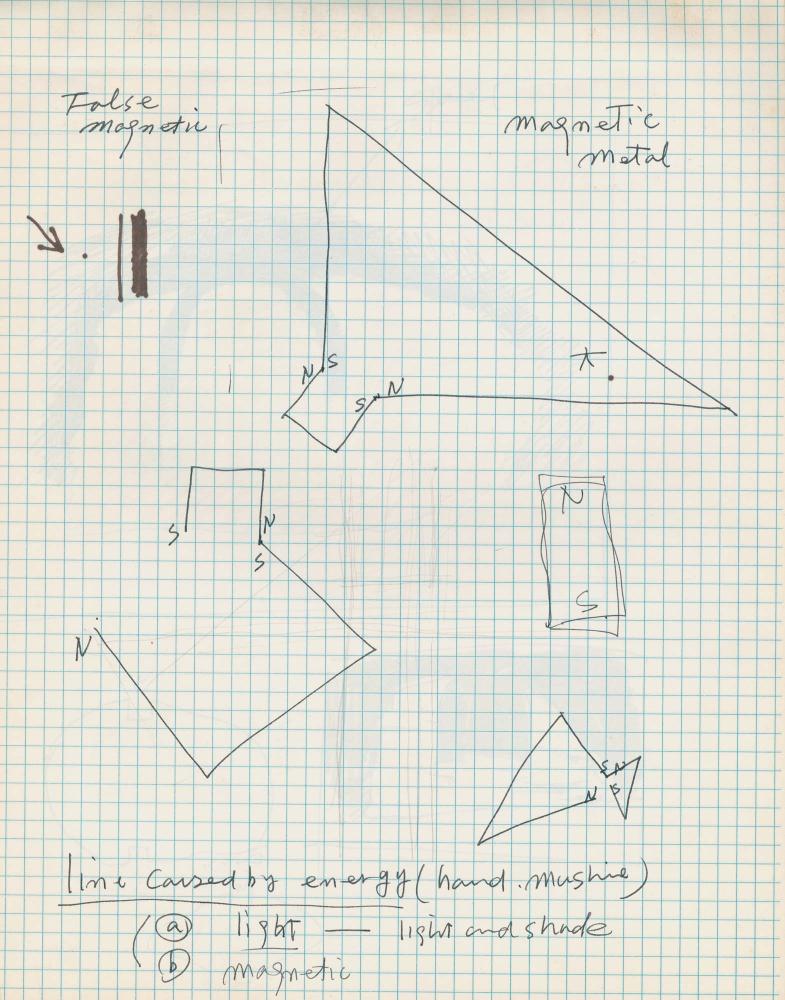 False
magnetic
magnetic
metal
N S
S N
S
N
S
N
N
S
S N
N S
line caused by energy (hand . mushine)
(a) light — light and shade
(b) magnetic